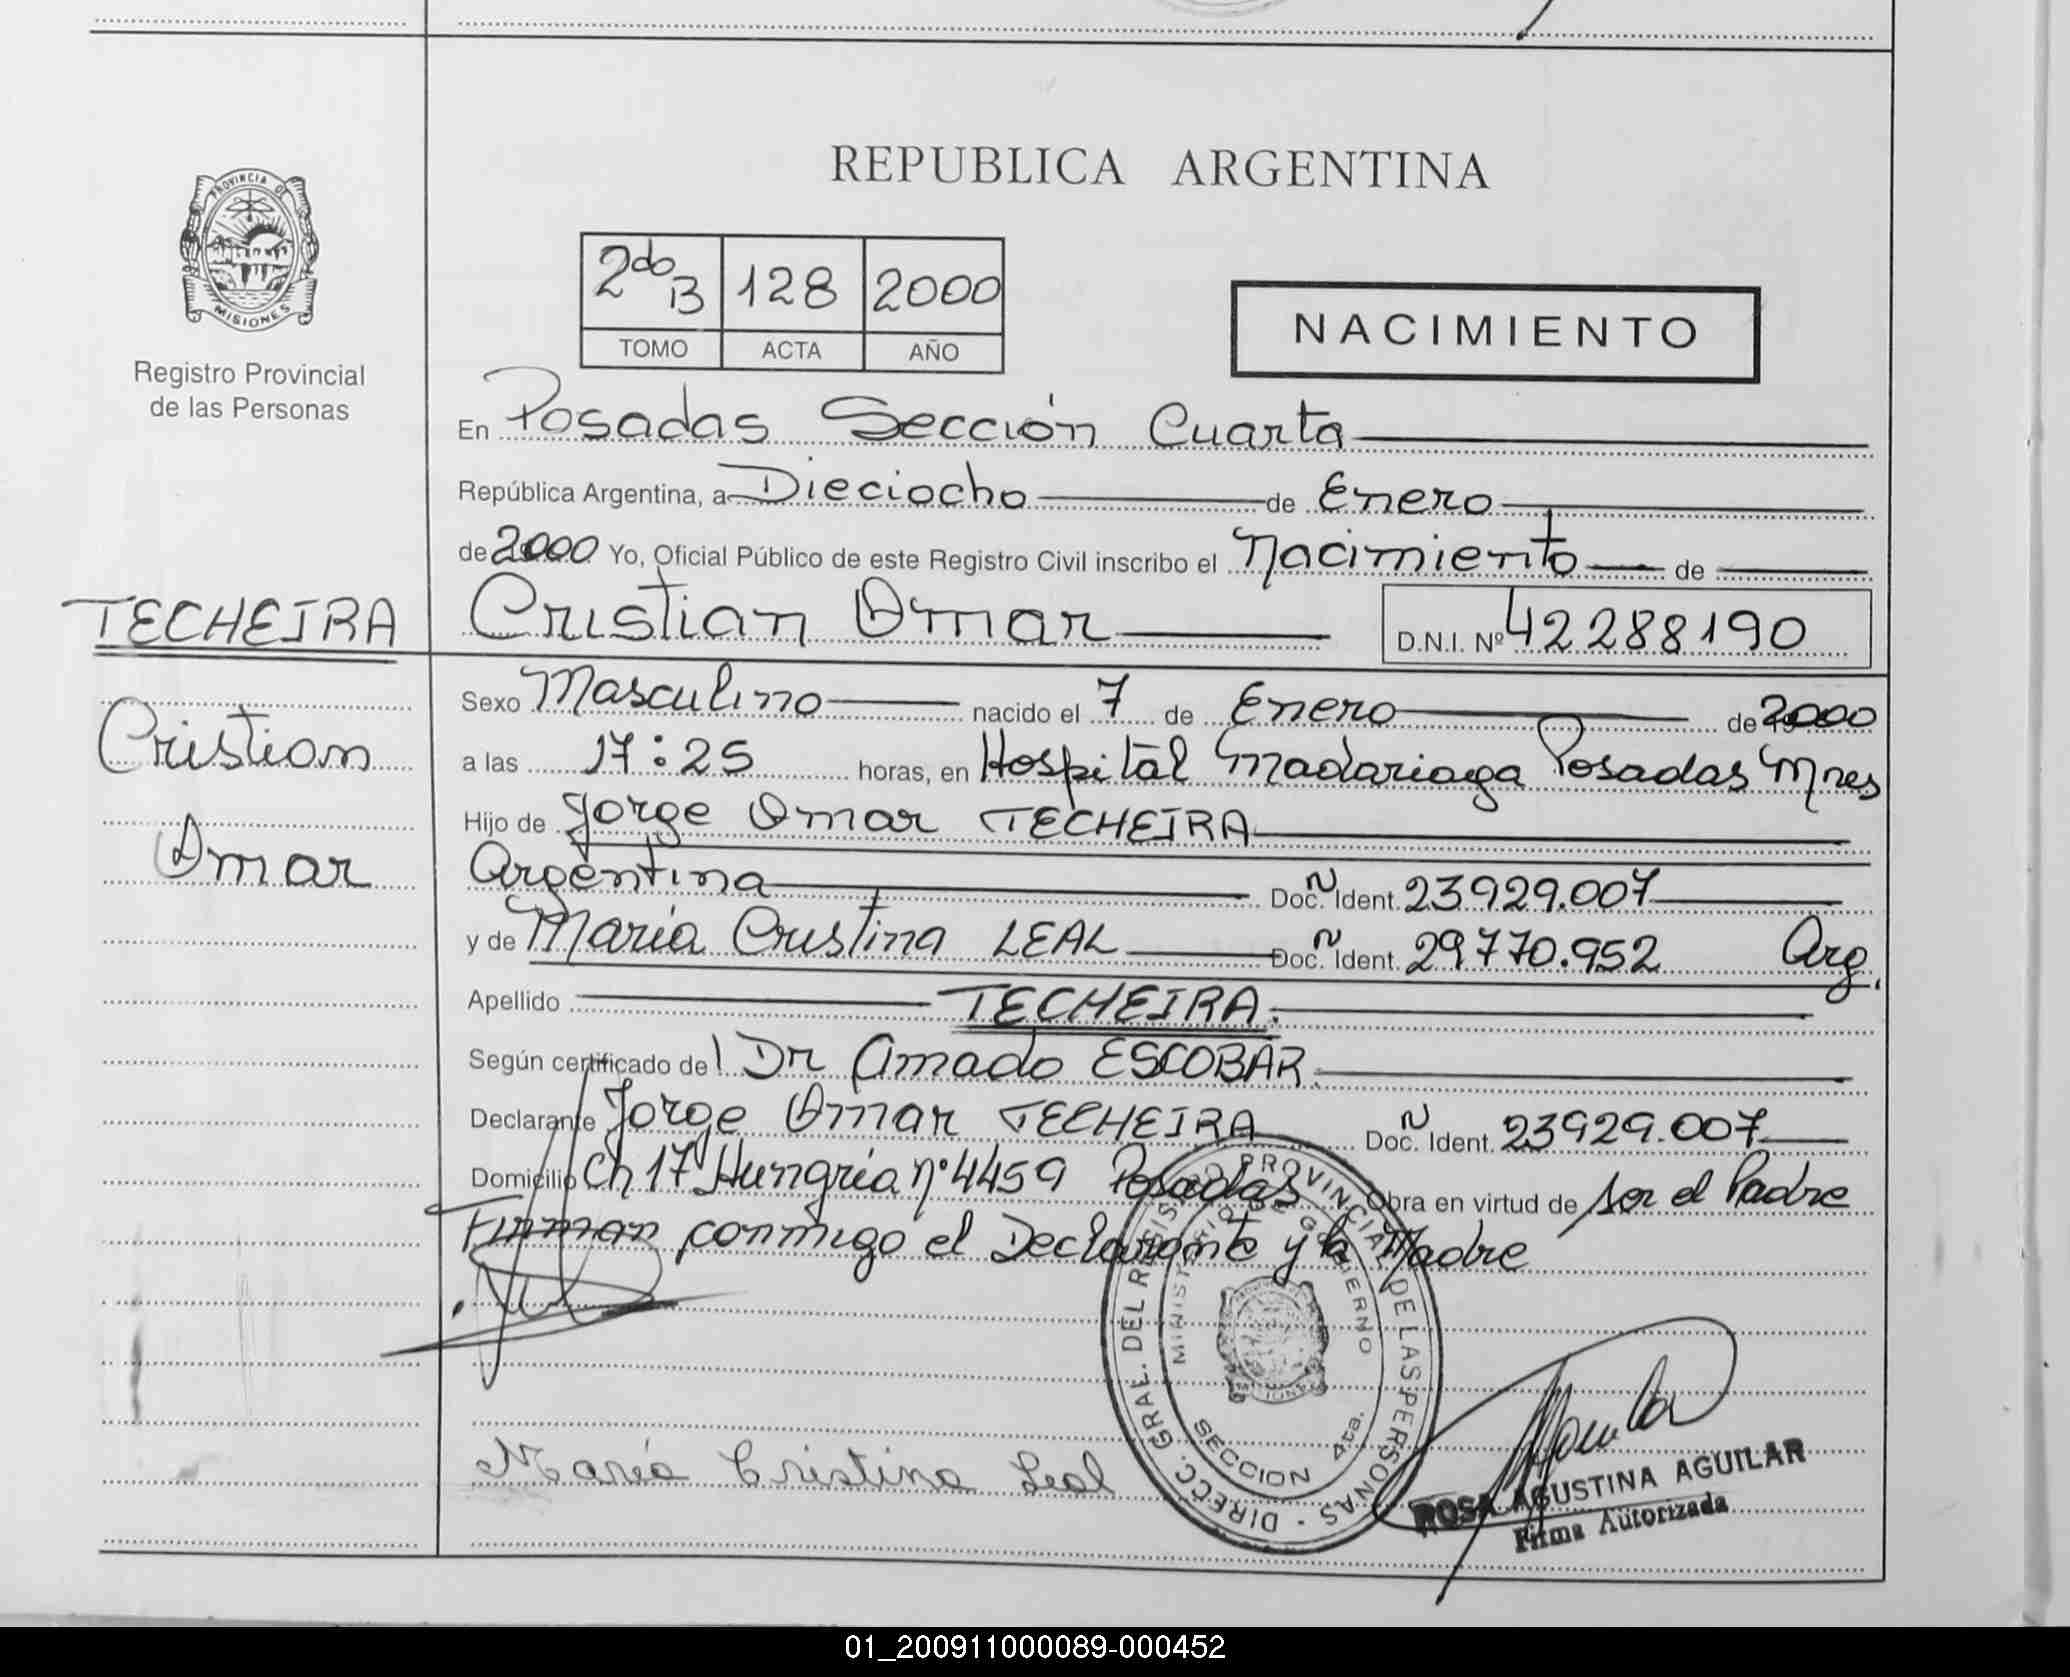 PROVINCIA DE
MISIONES
Registro Provincial
de las Personas
REPUBLICA ARGENTINA
2do B 128 2000
TOMO ACTA AÑO
NACIMIENTO
En Posadas Sección Cuarta
República Argentina, a Dieciocho de Enero
de 2000 Yo, Oficial Público de este Registro Civil inscribo el Nacimiento de
TECHEIRA Cristian Omar D.N.I. Nº 42288190
Cristian
Omar
Sexo Masculino nacido el 7 de Enero de 2000
a las 17:25 horas, en Hospital Madariaga Posadas Mnes
Hijo de Jorge Omar TECHEIRA
Argentina Doc. N Ident. 23929.007
y de María Cristina LEAL Doc. N Ident. 29770.952 Arg.
Apellido TECHEIRA.
Según certificado del Dr Amado ESCOBAR.
Declarante Jorge Omar TECHEIRA Doc. N Ident. 23929.007
Domicilio Ch 17 Hungria nº 4459 Posadas Obra en virtud de ser el Padre
Firman conmigo el Declarante y la Madre
DIRECC. GRAL. DEL REGISTRO PROVINCIAL DE LAS PERSONAS -
MINISTERIO DE GOBIERNO
MISIONES
SECCION 4ta.
María Cristina Leal
Aguilar
ROSA AGUSTINA AGUILAR
Firma Autorizada
01_200911000089-000452